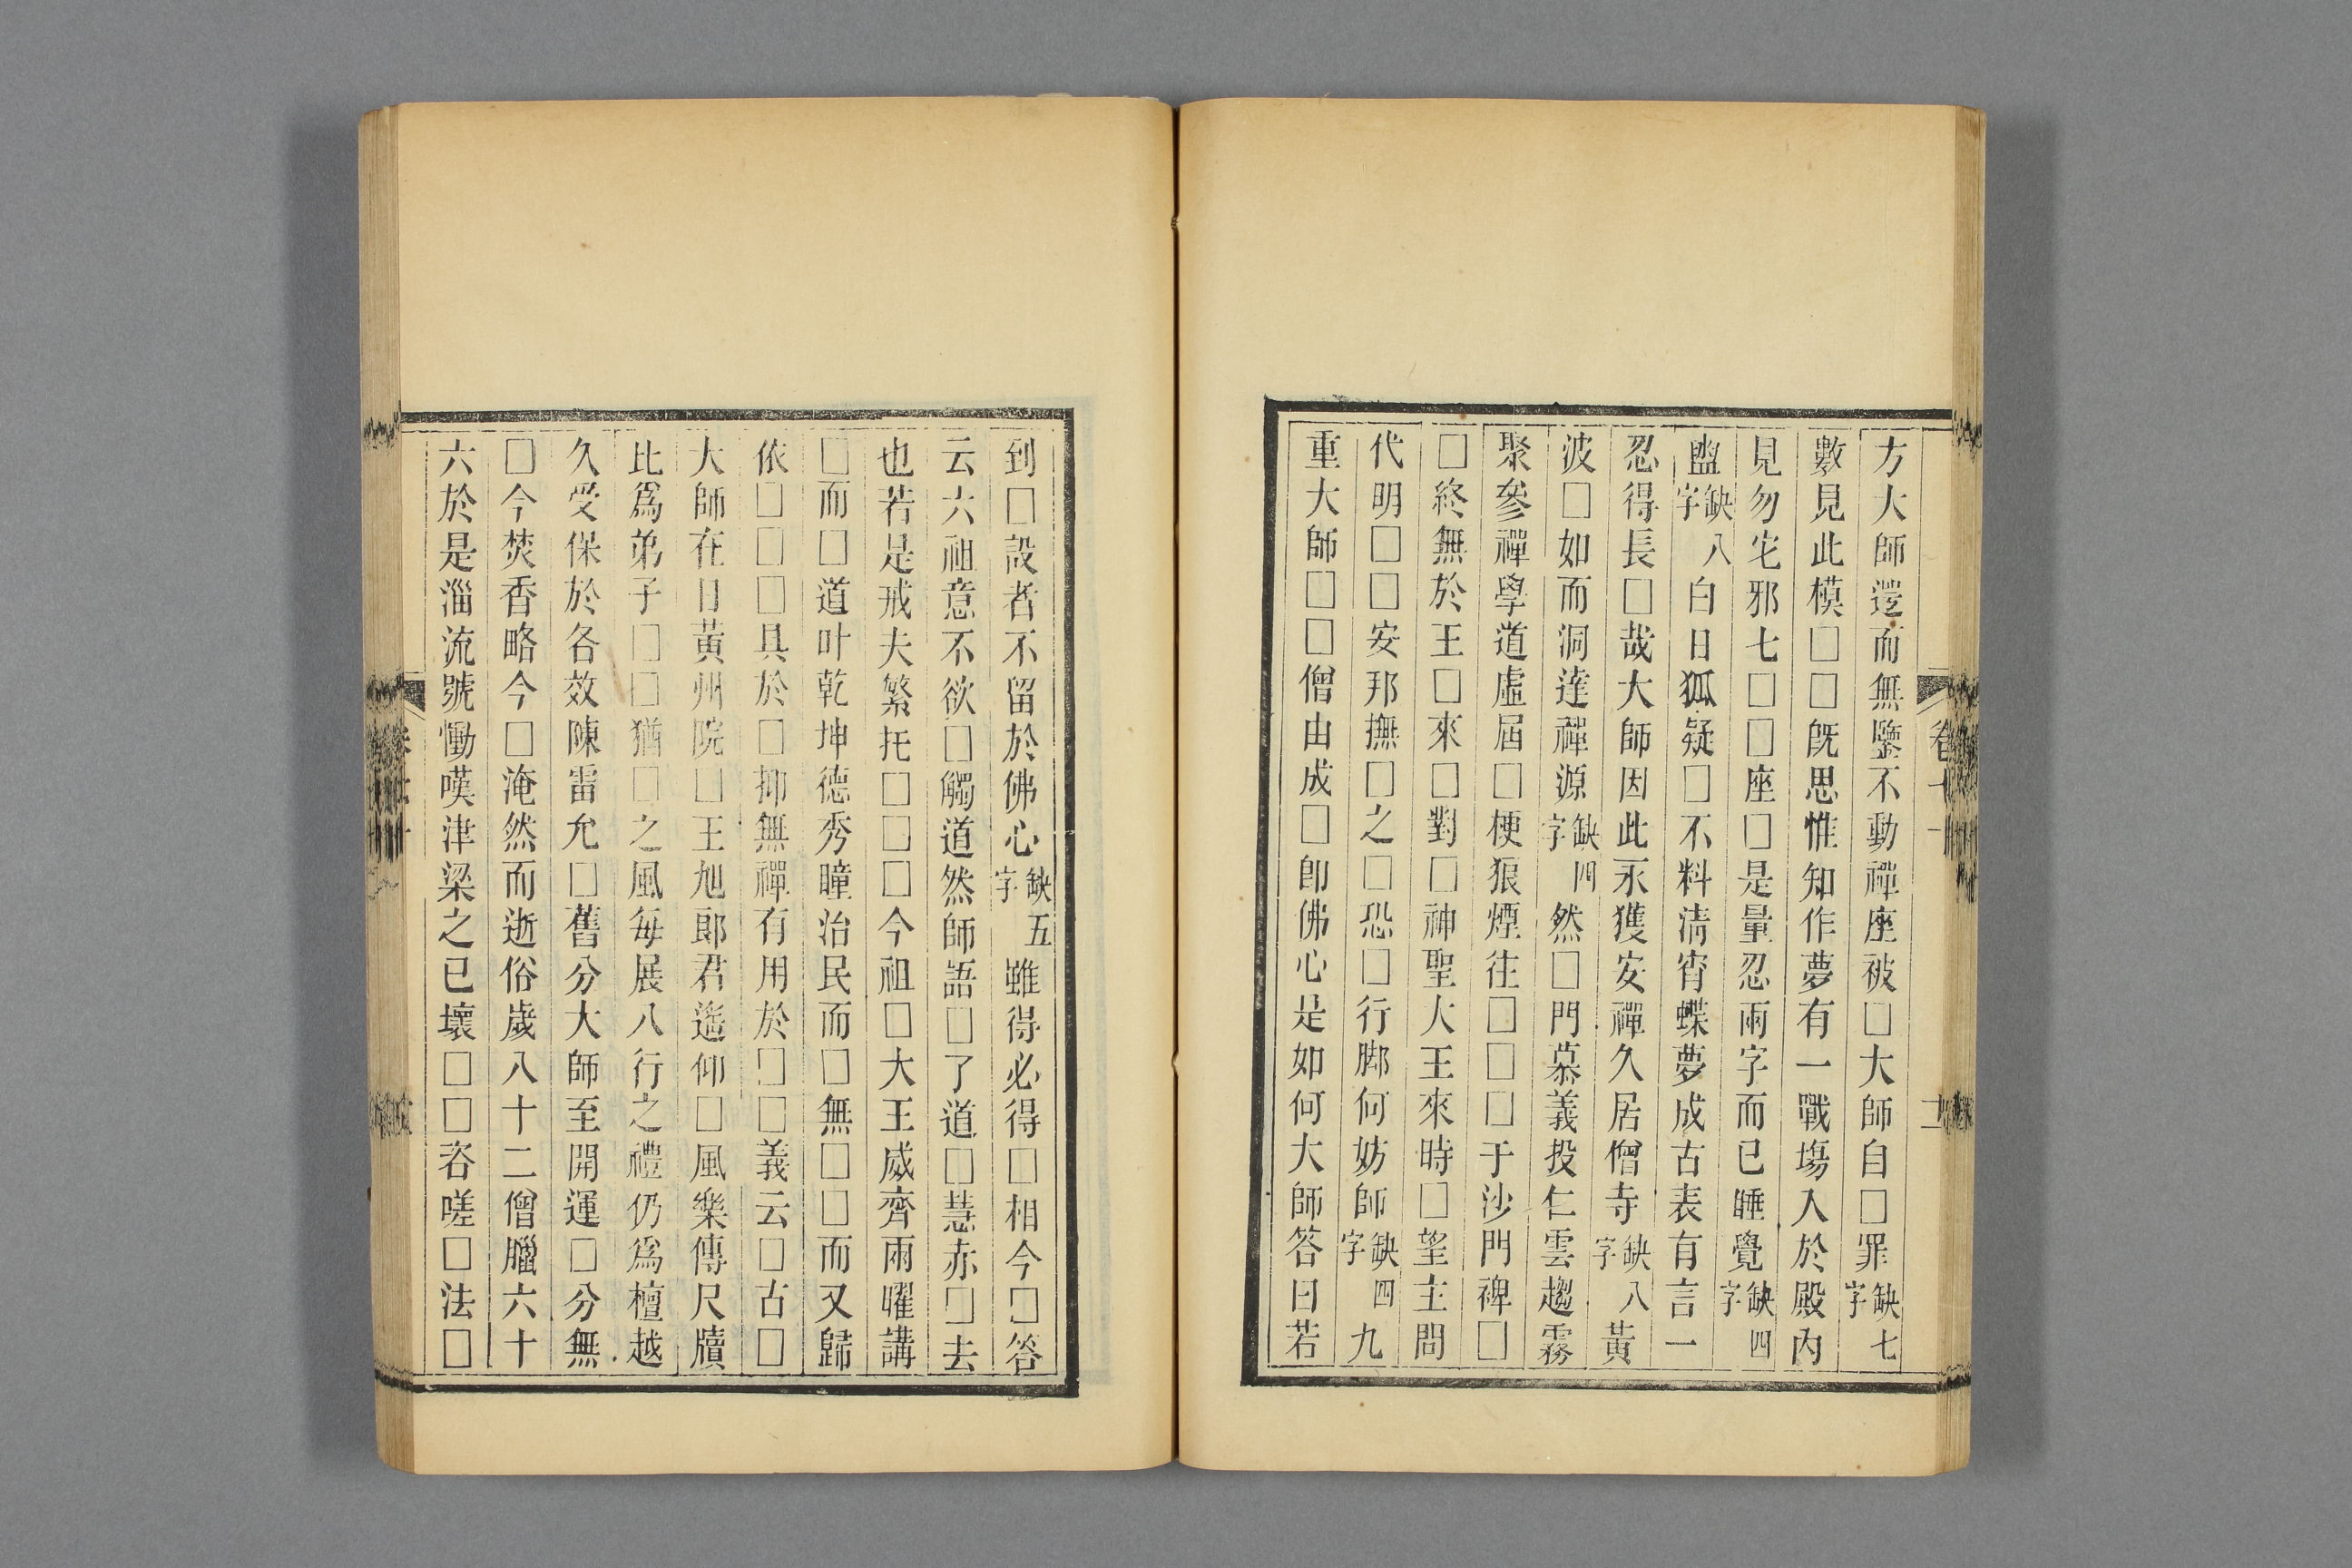 方大師遻而無鑒不動禪座被□大師自□罪缺七字
數見此模□□旣思惟知作夢有一戰塲入於殿內
見勿宅邪七□□座□是量忍兩字而已睡覺缺四字
盬缺八字白日狐疑□不料淸宵蝶夢成古表有言一
忍得長□哉大師因此永獲安禪久居僧寺缺八字黃
波□如而洞達禪源缺四字然□門慕義投仁雲趨霧
聚參禪學道虛屆□梗狼煙往□□□于沙門裨□
□終無於王□來□對□神聖大王來時□望主問
代明□□安邦撫□之□恐□行脚何妨師缺四字九
重大師□□僧由成□卽佛心是如何大師答曰若
到□設者不留於佛心缺五字雖得必得□相今□答
云六祖意不欲□觸道然師語□了道□慧赤□去
也若是戒夫繁托□□□今祖□大王威齊兩曜講
□而□道叶乾坤德秀瞳治民而□無□□而又歸
依□□□具於□抑無禪有用於□□義云□古□
大師在日黃州院□王旭郞君遙仰□風樂傳尺牘
比爲弟子□□猶□之風每展八行之禮仍爲檀越
久受保於各效陳雷允□舊分大師至開運□分無
□今焚香略今□淹然而逝俗歲八十二僧臘六十
六於是淄流號慟嘆津梁之已壞□□吝嗟□法□